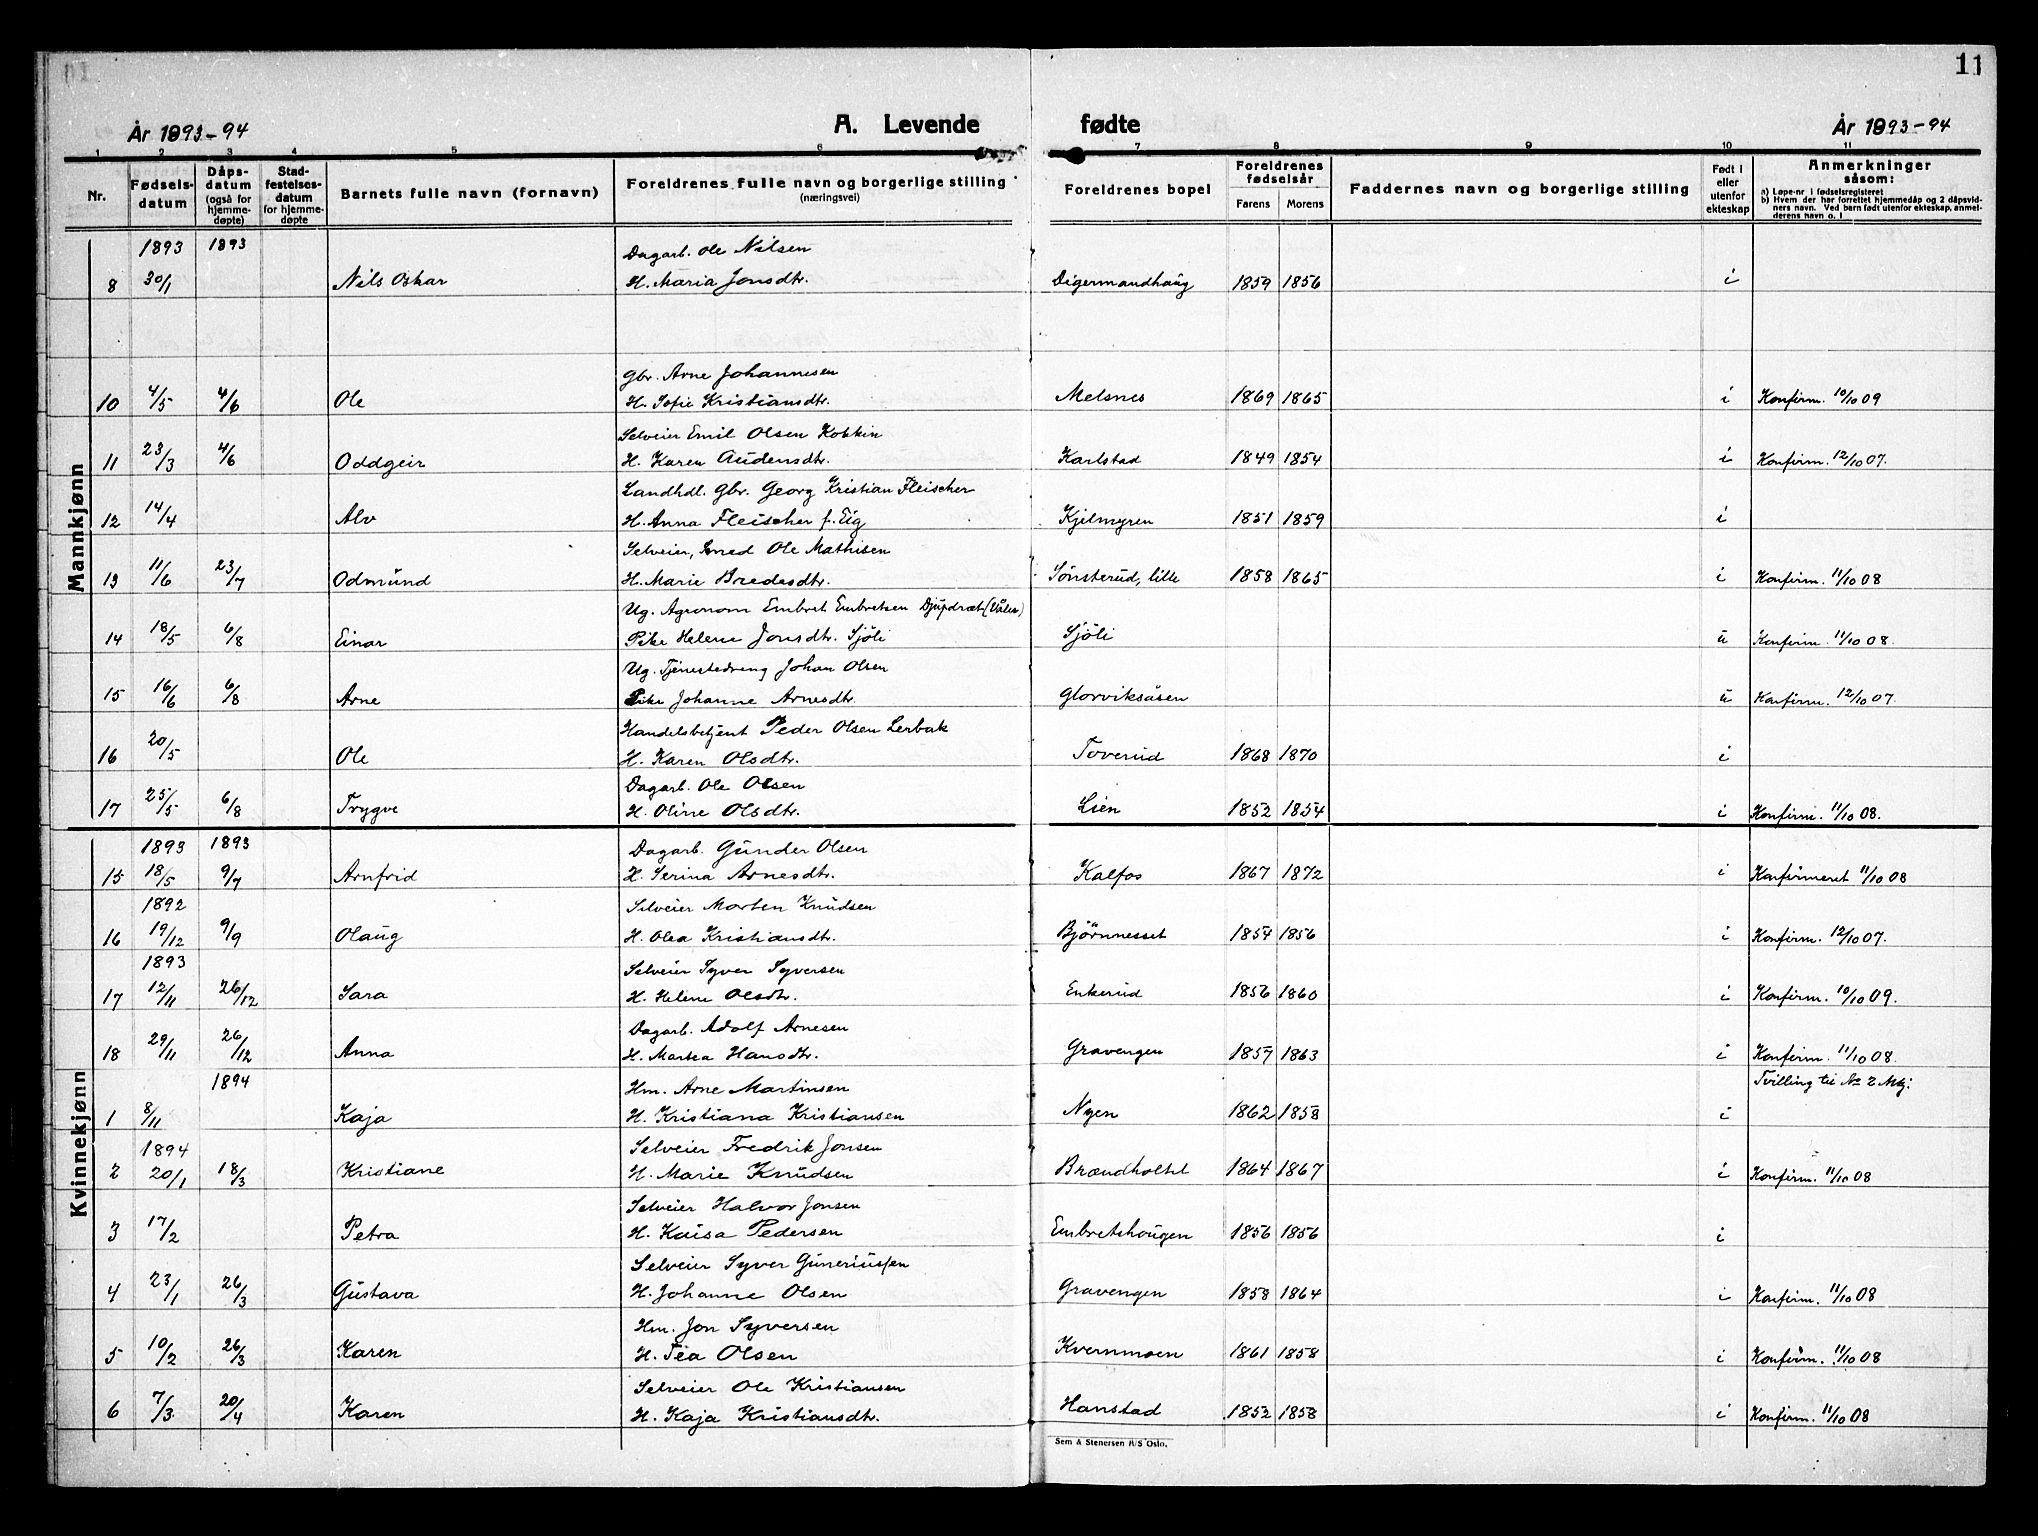 11
År 1893-94
A. Levende
fødte
År 1893-94
1 2 3 4 5 6 7 8 9 10 11
Nr.
Fødsels-
datum
Dåps-
datum
(også for
hjemme-
døpte)
Stad-
festelses-
datum
for hjemme-
døpte
Barnets fulle navn (fornavn)
Foreldrenes fulle navn og borgerlige stilling
(næringsvei)
Foreldrenes bopel
Foreldrenes
fødselsår
Farens Morens
Faddernes navn og borgerlige stilling
Født i
eller
utenfor
ekteskap
Anmerkninger
såsom:
a) Løpe-nr i fødselsregisteret
b) Hvem der har forrettet hjemmedåp og 2 dåpsvid-
ners navn. Ved barn født utenfor ekteskap, anmel-
derens navn o. l
Mannkjønn
1893 1893 Dagarb. Ole Nilsen
8 30/1 Nils Oskar H. Maria Jonsdtr. Digermandhaug 1859 1856 i
Gbr. Arne Johannesen
10 4/5 4/6 Ole H. Sofie Kristiansdtr. Melsnes 1869 1865 i Konfirm. 10/10 09
Selveier Emil Olsen Kobkin
11 23/3 4/6 Oddgeir H. Karen Audensdtr. Karlstad 1849 1854 i Konfirm. 12/10 07.
Landhdl. Gbr. Georg Kristian Fleischer
12 14/4 Alv H. Anna Fleischer f. Eig Kjelmyren 1851 1859 i
Selveier, Smed Ole Mathisen
13 11/6 23/7 Odmund H. Marie Bredesdtr. Sønsterud, lille 1858 1865 i Konfirm. 11/10 08
Ug. Agronom Embret Embretsen Djupdræt (Våler)
14 18/5 6/8 Einar Pike Helene Jonsdtr. Sjöli Sjöli u Konfirm. 11/10 08.
Ug. Tjenestedreng Johan Olsen
15 16/6 6/8 Arne Pike Johanne Arnesdtr. Glorviksåsen u Konfirm. 12/10 07.
Handelsbetjent Peder Olsen Lerbak
16 20/5 Ole H. Karen Olsdtr. Toverud 1868 1870 i
Dagarb. Ole Olsen
17 25/5 6/8 Trygve H. Oline Olsdtr. Lien 1852 1854 i Konfirm. 11/10 08.
Kvinnekjønn
1893 1893 Dagarb. Gunder Olsen
15 18/5 9/7 Arnfrid H. Serina Arnesdtr. Kalfos 1867 1872 i Konfirmeret 11/10 08
1892 Selveier Morten Knudsen
16 19/12 9/9 Olaug H. Olea Kristiansdtr. Bjørnnesset 1854 1856 i Konfirm. 12/10 07.
1893 Selveier Syver Syversen
17 12/11 26/12 Sara H. Helene Olsdtr. Enkerud 1856 1860 i Konfirm. 10/10 09.
Dagarb. Adolf Arnesen
18 29/11 26/12 Anna H. Martea Hansdtr. Gravengen 1857 1863 i Konfirm. 11/10 08.
1894 Hm. Arne Martinsen Tvilling til No 2 Mkj:
1 8/11 Kaja H. Kristiana Kristiansen Nyen 1862 1858 i
1894 Selveier Fredrik Jonsen
2 20/1 18/3 Kristiane H. Marie Knudsen Brændholtet 1864 1867 i Konfirm. 11/10 08
Selveier Halvor Jonsen
3 17/2 Petra H. Kaisa Pedersen Embretshougen 1856 1856 i
Selveier Syver Guneriussen
4 23/1 26/3 Gustava H. Johanne Olsen Gravengen 1858 1864 i Konfirm. 11/10 08
Hm. Jon Syversen
5 10/2 26/3 Karen H. Tea Olsen Kvernmoen 1861 1858 i Konfirm. 11/10 08
Selveier Ole Kristiansen
6 7/3 20/4 Karen H. Kaja Kristiansdtr. Hanstad 1852 1858 i Konfirm. 11/10 08
Sem & Stenersen A/S Oslo.